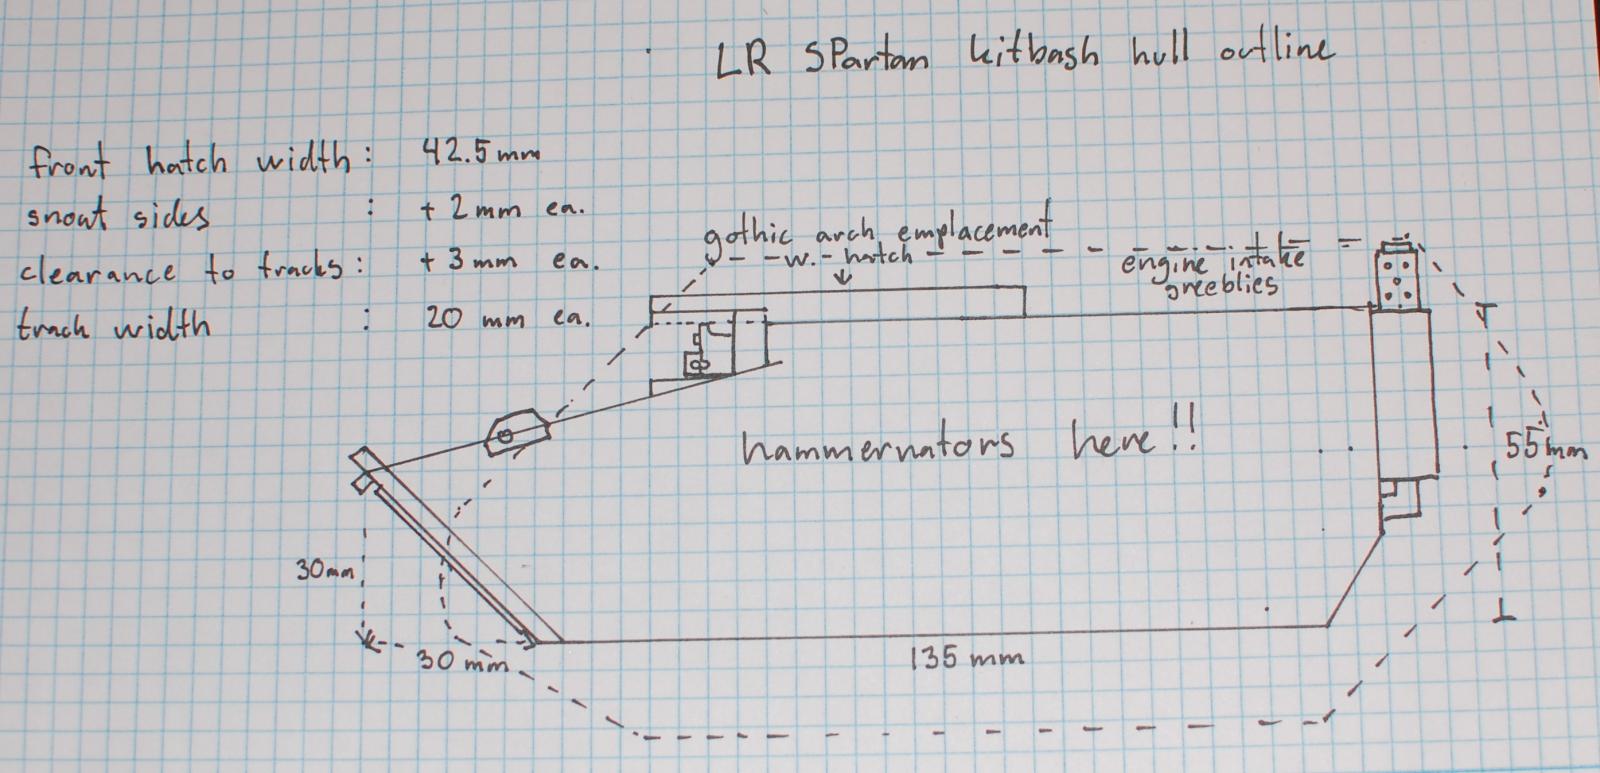 LR SPartan kitbash hull outline
front hatch width: 42.5 mm
snout sides : + 2 mm ea.
clearance to tracks: + 3 mm ea.
track width : 20 mm ea.
gothic arch emplacement
w. hatch
engine intake
greeblies
hammernators here!!
55 mm
30 mm
30 mm
135 mm